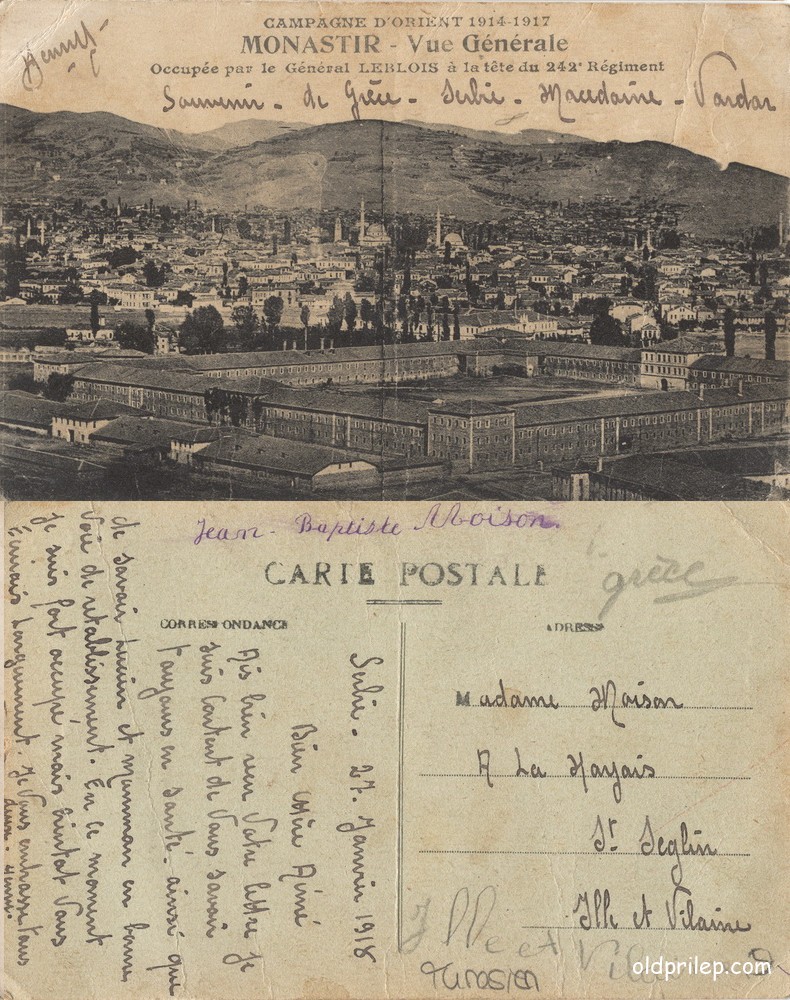 CAMPAGNE D'ORIENT 1914-1917
MONASTIR - Vue Générale
Occupée par le Général LEBLOIS à la tête du 242e Régiment
Souvenir - de Grèce - Serbie - Macedoine - Vardar
Jean-Baptiste Moison.
CARTE POSTALE
grèce
CORRESPONDANCE
ADRESSE
Serbie - 27. Janvier 1918
Bien chère Aimé
bien reçu Votre lettre je
suis content de Vous savoir
en santé ainsi que
de savoir Lucien et Maman en bonne
Voie de rétablissement. En ce moment
Je suis fort occupé mais bientôt Vous
longuement. Je Vous embrasse tous
Madame Moison
A La Hayais
St Seglin
Ille et Vilaine
Ille et Vil
oldprilep.com